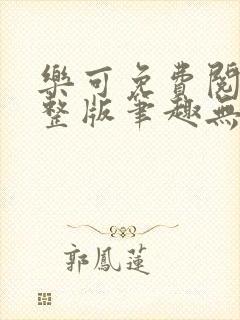 樂可免費閱
整版筆趣無
郭鳳蓮